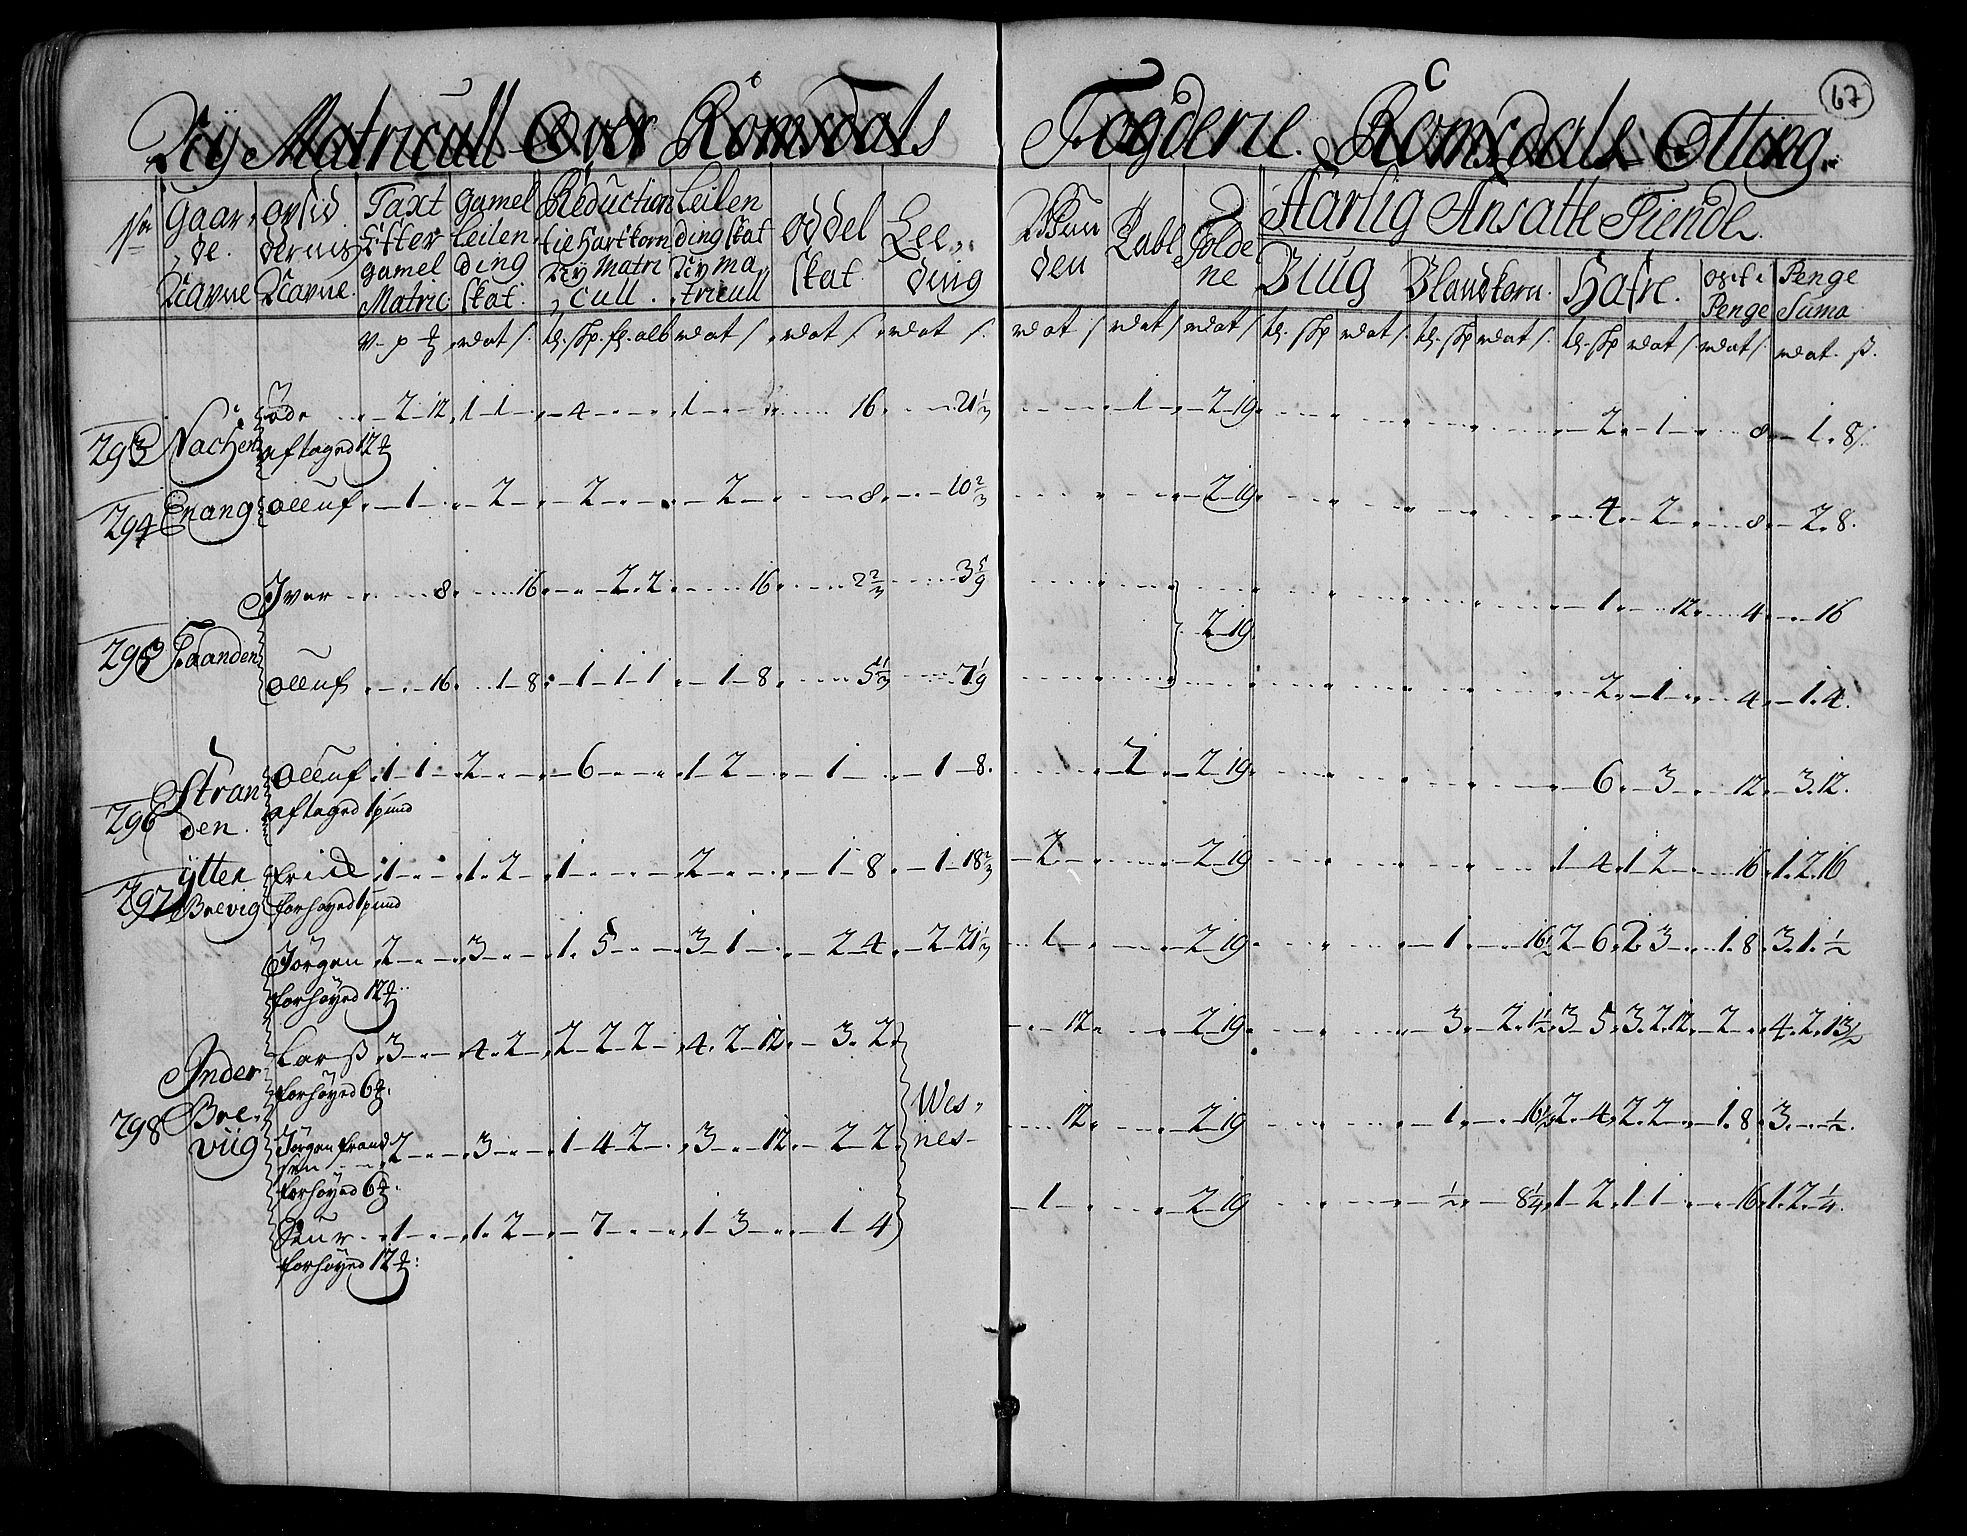 Ny Matricull Over Romsdals Fogderie. Romsdals Otting. 67
No Gaarde. Navne Opsiddernis Navne. Taxt Efter gamel Matric: gamel Leilending skat. Reduction tie Hartkorn Ny Matricull. Leilending skat Ny Matricull oddel skat. Leeding
Baaden Rabl Tolde ne Aarlig Ansatte Tiende.
Blug Blandkorn. Hafre. Penge Penge Suma
293 Nachen öde 2 12 1 1 4 1 16 21 1/3 1 2 19 2 1 8 1 8
aftaged 12
294 Enang olluf 1 2 2 2 8 10 2/3 2 19 4 2 8 2 8.
295 Iver 8 16 2 2 16 2 2/3 3 5/9 1 12 4 16
2 19
olluf 16 1 8 1 1 1 1 8 5 1/3 7 1/9 2 1 4 1 4.
296 Stranden. olluf 1 1 2 6 1 2 1 1 8. 2 2 19 6 3 12 3 12.
aftaged 1 pund
297 ytter Brevig 1 1 2 1 2 1 8 1 18 2/3 2 2 19 1 4 1 2 16 1 2 16
forhøyed 1 pund
Jörgen 2 3 1 5 3 1 2 4 2 21 1/3 1 2 19 1 16 1/2 2 6 2 3 1 8 3 1 1/2
forhøyed 12
298 Inder Breviig Lars 3 4 2 2 2 2 4 2 12 3 2 12 2 19 3 2 1 1/2 3 5 3 2 12 2 4 2 13 1/2
forhøyed 6
Wesnes
Jörgen 2 3 1 4 2 3 12 2 2 12 2 19 1 16 1/2 2 4 2 2 1 8 3 1/2
forhøyed 6
1 1 2 7 1 3 1 4 1 2 19 1/2 8 1/4 1 2 1 1 16 1 2 1/4
forhøyed 12